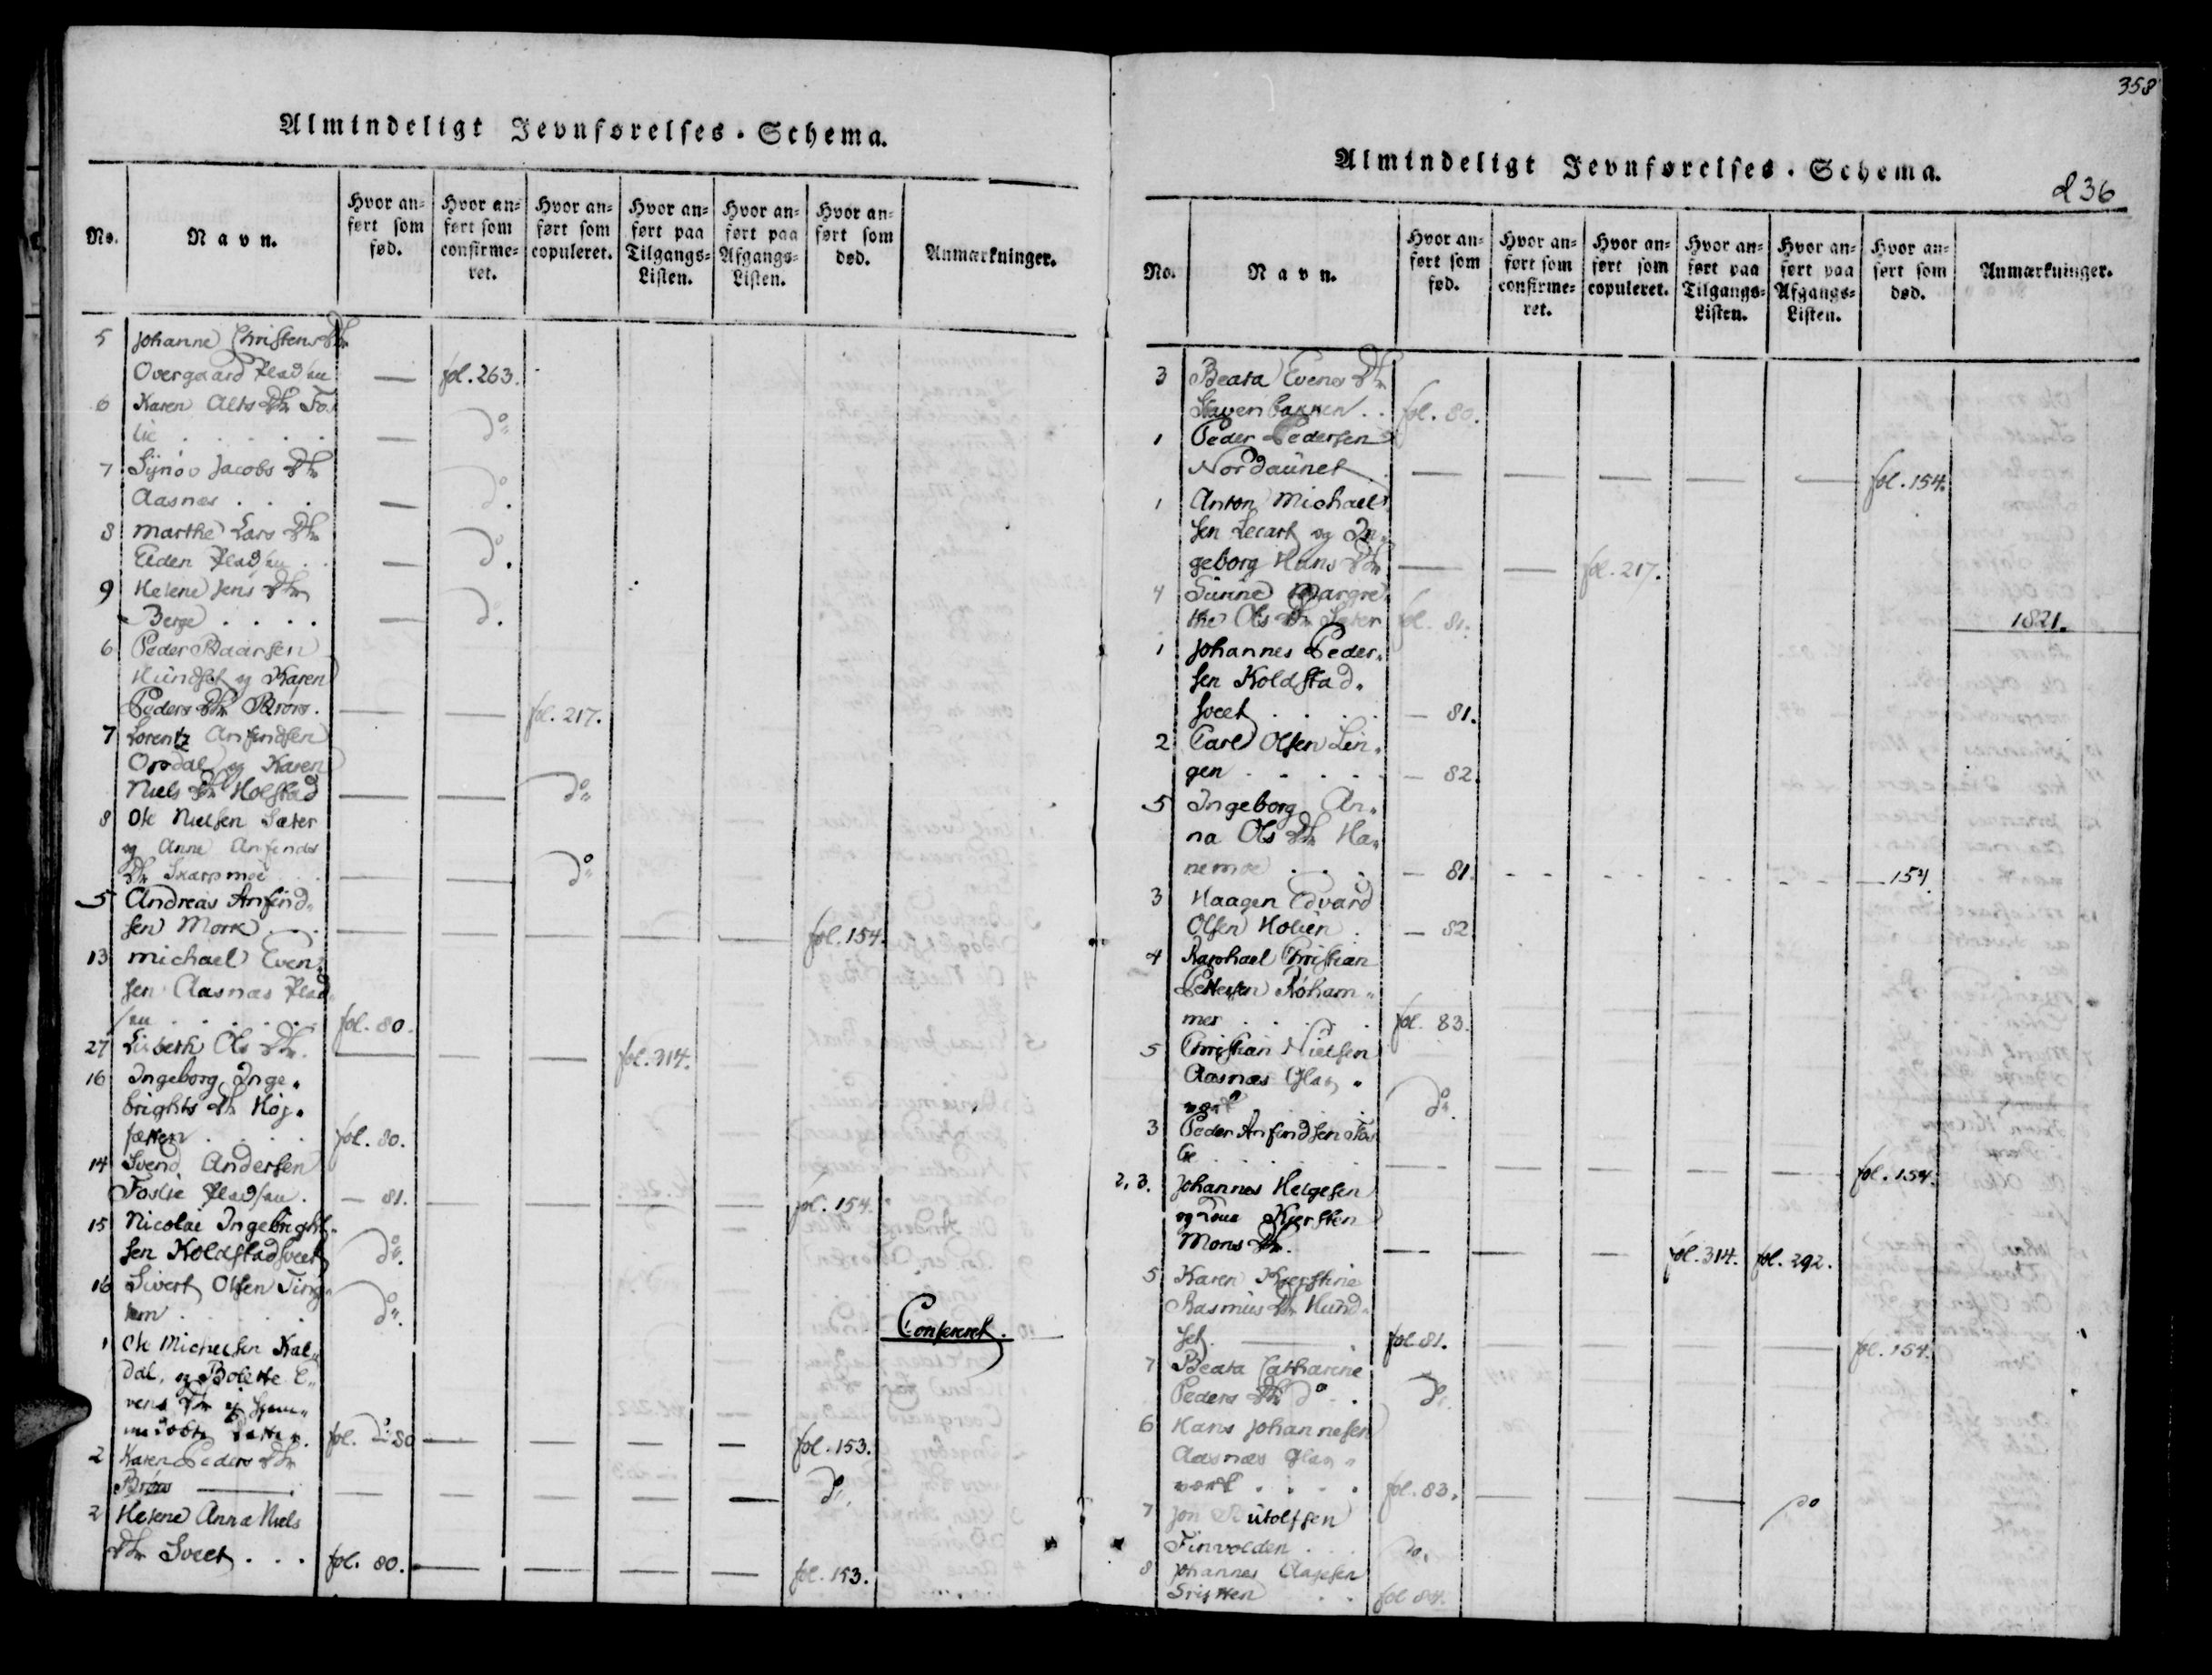 Almindeligt Jevnførelses-Schema.
No. Navn. Hvor anført som fød. Hvor anført som confirmeret. Hvor anført som copuleret. Hvor anført paa Tilgangs-Listen. Hvor anført paa Afgangs-Listen. Hvor anført som død. Anmærkninger.
5 Johanne Christens Dtr
Overgaard Pladsen — fol. 263.
6 Karen Alts Dtr Fos
lie . . . . . — do
7 Synøv Jacobs Dtr
Aasnæs . . . — do.
8 Marthe Lars Dtr
Elden Pladsen . — do.
9 Helene Jens Dtr
Berge . . . . — do.
6 Peder Baarsen
Hundset og Karen
Peders Dtr Brørs. — — fol. 217.
7 Lorentz Anfindsen
Overdal og Karen
Niels Dtr Holstad — — do
8 Ole Nielsen Sæter
og Anne Anfinds
Dtr Skarpmoe — — do
5 Andreas Anfind-
sen Mork . . . — — — — — fol. 154.
13 Michael Even-
sen Aasnæs Plad
sen . . . . . fol. 80.
27 Lisbeth Ols Dtr. — — — fol. 314.
16 Ingeborg Inge-
brights Dtr Høj-
sætten . . . . fol. 80.
14 Svend Andersen
Foslie Pladsen . — 81. — — — — fol. 154.
15 Nicolai Ingebright-
sen Koldstadsveet do.
16 Sivert Olsen Ting-
. . . . . do.
Confereret.
1 Ole Michelsen Kal-
dal, og Bolette E-
vens Dtr ej hjem-
medøbte Datter. fol. 80 — — — — fol. 153.
2 Karen Peders Dtr
Brørs — — — — — — do.
2 Helene Anna Niels
Dtr Sveet . . . fol. 80. — — — — fol. 153.
358
Almindeligt Jevnførelses-Schema.
236
No. Navn. Hvor anført som fød. Hvor anført som confirmeret. Hvor anført som copuleret. Hvor anført paa Tilgangs-Listen. Hvor anført paa Afgangs-Listen. Hvor anført som død. Anmærkninger.
3 Beata Evens Dtr
Stavenbakken . . fol. 80.
1 Peder Pedersen
Nordaunet . — — — — — fol. 154.
1 Anton Michael-
sen Lecart og In-
geborg Hans Dtr — — fol. 217.
4 Sunne Margre-
the Ols Dtr Sæter fol. 81.
1821.
1 Johannes Peder-
sen Koldstad-
sveet . . . . — 81.
2 Carl Olsen Lin-
gen . . . . . — 82.
5 Ingeborg An-
na Ols Dtr Ha-
nemoe . . . — 81. — 154.
3 Haagen Edvard
Olsen Holien . — 82
4 Raphael Christian
Pettersen Røham-
mer . . . . . fol. 83.
5 Christian Nielsen
Aasnæs Glas-
værk . do.
3 Peder Anfindsen Fos
lie . . . . . — — — — — fol. 154.
2, 3. Johannes Helgesen
og Kone Kjersten
Mons Dtr. — — — fol. 314. fol. 292.
5 Karen Kjerstine
Rasmus Dtr Hund-
set. — fol. 81. — — — — fol. 154.
7 Beata Catharine
Peders Dtr do . . do.
6 Hans Johannesen
Aasnæs Glas-
værk . . . . fol. 83. — — — do
7 Jon Rutolfsen
Finvolden . . . do.
8 Johannes Aagesen
. . fol 84.